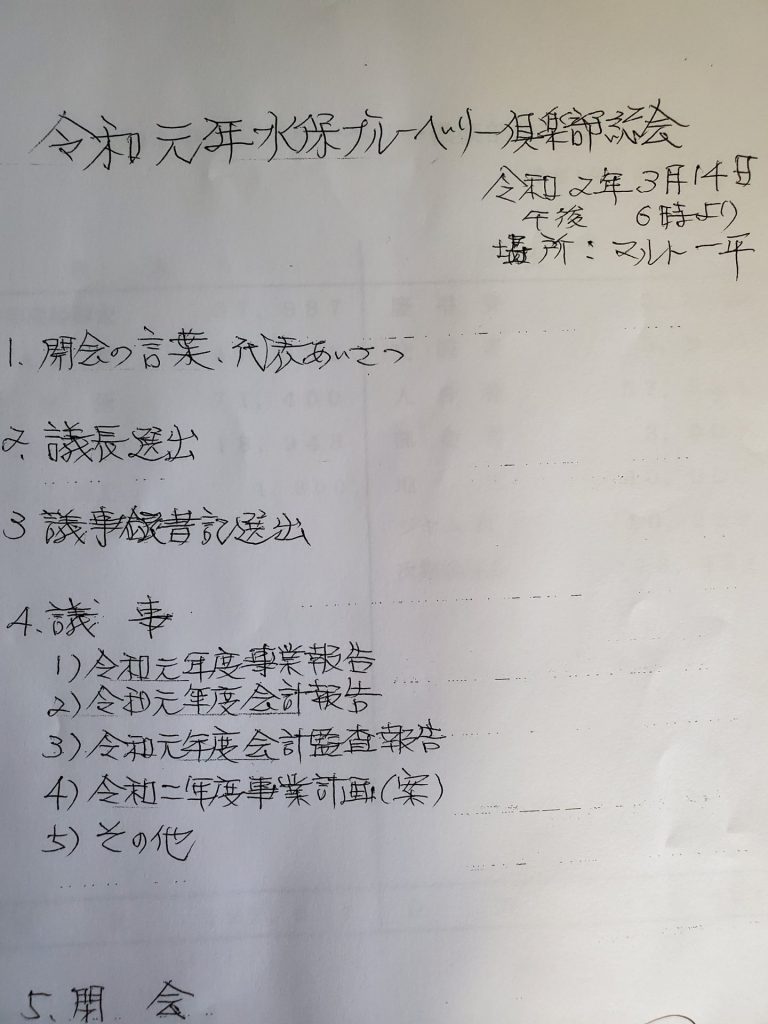 令和元年水保ブルーベリー倶楽部総会
令和2年3月14日
午後 6時より
場所:マルト一平
1. 開会の言葉、代表あいさつ
2. 議長選出
3 議事録書記選出
4. 議 事
1) 令和元年度事業報告
2) 令和元年度会計報告
3) 令和元年度会計監査報告
4) 令和二年度事業計画(案)
5) その他
5. 閉 会